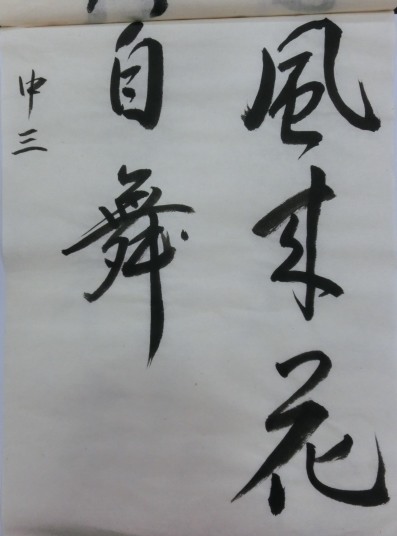 風来花
自舞
中三